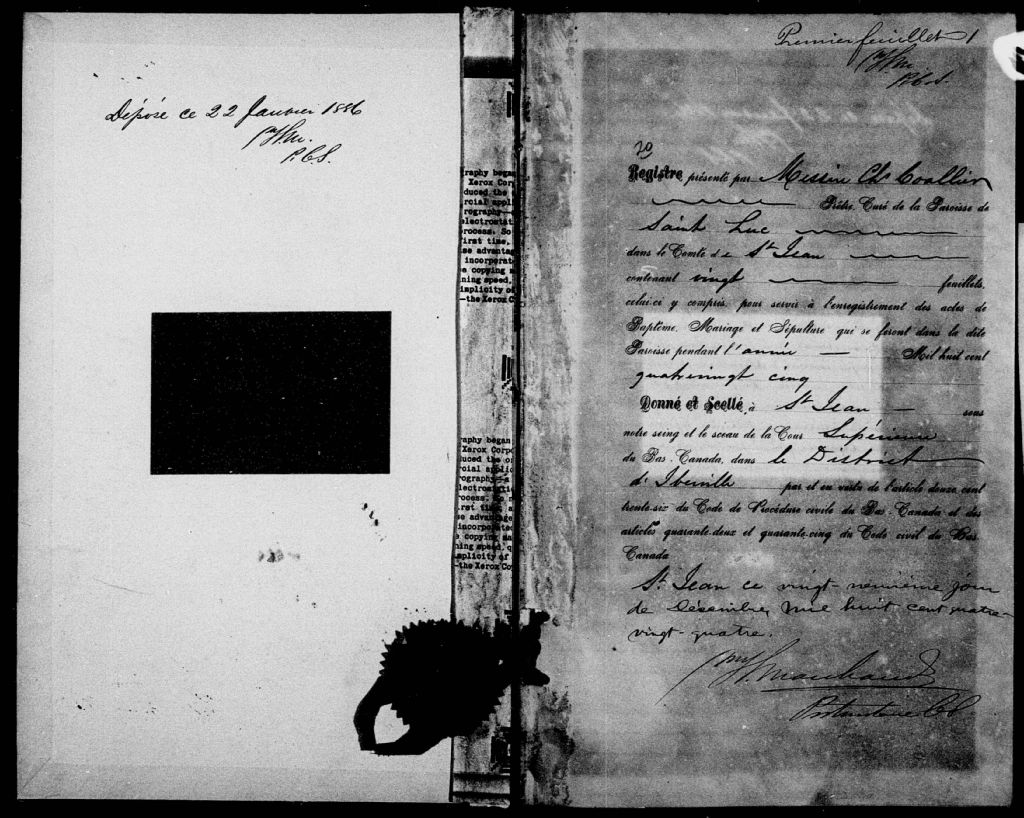 Déposé ce 22 Janvier 1886
P.C.S.
raphy began
Xerox Corp
duced the
rcial appl
rography—
lectrostat
process. So
first time,
se advantag
incorporate
copying
ning speed,
implicity of
—the Xerox C
raphy began
Xerox Corpo
uced the
cial applic
rography—a
lectrostati
rocess.
rst ti
se advantage
incorporated
copying ma
ning speed, q
mplicity of
—the Xerox Co
Premier feuillet 1
P.C.S.
20
Registre présenté par Messire Chs Coallier
Prêtre, Curé de la Paroisse de
Saint Luc
dans le Comté de St Jean
contenant vingt feuillets,
celui-ci y compris, pour servir à l'enregistrement des actes de
Baptême, Mariage et Sépulture qui se feront dans la dite
Paroisse pendant l'année — Mil huit cent
quatrevingt cinq
Donné et Scellé, à St Jean — sous
notre seing et le sceau de la Cour Supérieure
du Bas-Canada, dans le District
d'Iberville par et en vertu de l'article douze cent
trente-six du Code de Procédure civile du Bas-Canada et des
articles quarante-deux et quarante-cinq du Code civil du Bas-
Canada
St Jean ce vingt-neuvième jour
de Décembre, mil huit cent quatre-
vingt-quatre.
Marchand
Protonotaire C.S.